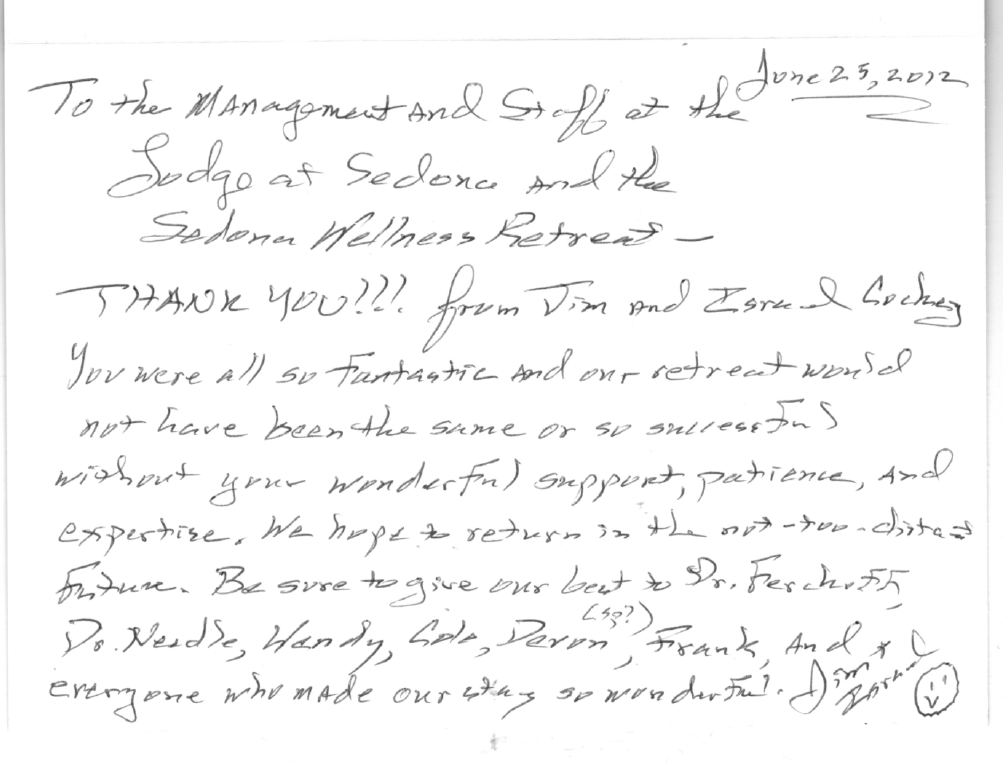 June 25, 2012
To the Management And Staff at the
Lodge at Sedona And the
Sedona Wellness Retreat —
THANK YOU!!! from Jim And
You were all so fantastic And our retreat would
not have been the same or so successful
without your wonderful support, patience, And
expertise. We hope to return in the not-too-distant
future. Be sure to give our best to Dr.
(sp?)
Dr. Needle, Wendy, Devon, Frank, And
everyone who made our stay so wonderful. Jim